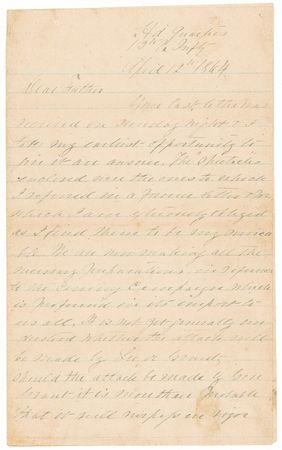 Hd Quarters
Pa Infty
April 12th 1864
Dear Father
Your last letter was
received on Monday Night & I
take my earliest opportunity to
give it an answer. The Spectacles
enclosed were the ones to which
I referred in a former letter for
which I am obliged
as I find them to be
We are now making all the
necessary Preparations in reference
to the Coming Campaign which
is Profound in its import to
us all. It is not yet generally un
derstood whether the attack will
be made by Lee or Grant.
Should the attack be made by Gen
Grant it is more than Probable
that it will in vigor